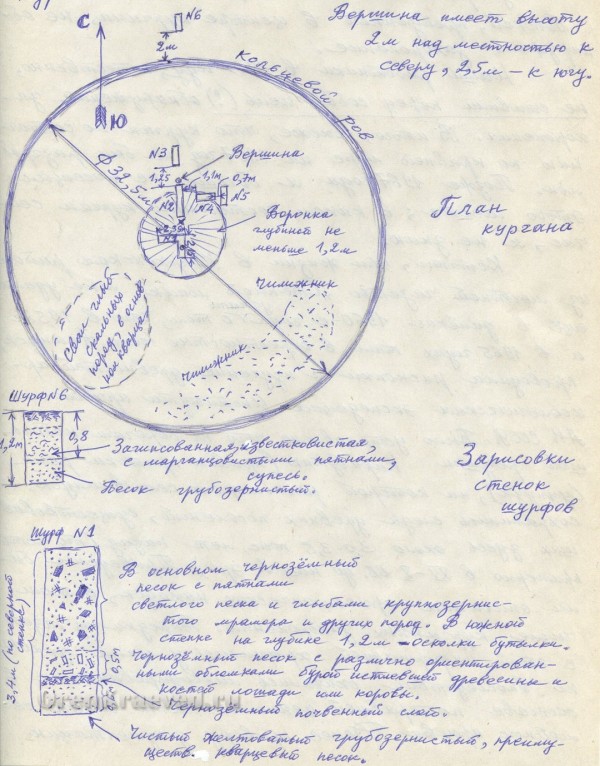 Вершина имеет высоту
2 м над местностью к
северу, 2,5 м – к югу.
С
Ю
N6
2 м
Кольцевой ров
Ф 32,5 м
N3
1,25
Вершина
1,1 м
0,7 м
N2
N4
N5
N1
Воронка
глубиной не
меньше 1,2 м
План
кургана
Свал глыб
скальных
пород, в основ
ном кварца
чилижник
чилижник
Шурф N6
1,2 м
0,8
Загипсованная, известковистая,
с марганцовистыми пятнами,
супесь.
Песок грубозернистый.
Зарисовки
стенок
шурфов
Шурф N1
3,1 м (по северной
стенке)
0,5 м
В основном чернозёмный
песок с пятнами
светлого песка и глыбами крупнозернис-
того мрамора и других пород. В южной
стенке на глубине 1,2 м – осколки бутылки.
Чернозёмный песок с различно ориентирован-
ными обломками бурой истлевшей древесины и
костей лошади или коровы.
Чернозёмный почвенный слой.
Чистый желтоватый грубозернистый, преиму-
ществ. кварцевый песок.